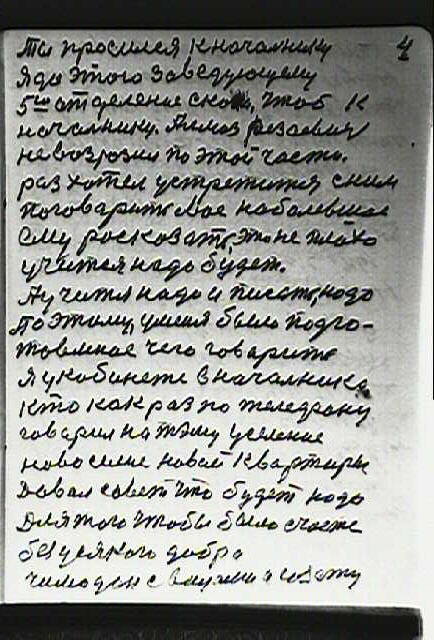 4
Ты просился к началнику
Я до этого заведующему
5ым отделение сказ, чтоб к
началнику.
не возрозил по этой части.
раз хотел устретится с ним
поговарить мое наболевшое
ему росказать, это не плохо
учится надо будет.
А учится надо и писать, надо
По этому, у меня было подго-
товленое чего говарить
Я у кабинете в началника
кто как раз по теледфону
говарил на тэму уселение
новоселие новой квартиры
Давал совет что будет надо
Для того чтобы было счасте
без усякого добра